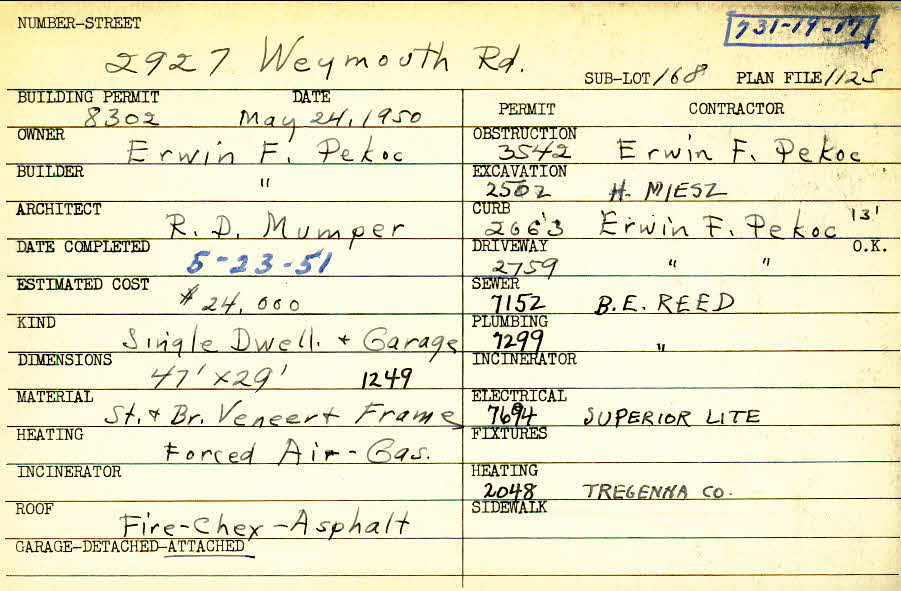 NUMBER-STREET
731-19-17
2927 Weymouth Rd.
SUB-LOT 168 PLAN FILE 1125
BUILDING PERMIT DATE
8302 May 24, 1950
OWNER
Erwin F. Pekoc
BUILDER
"
ARCHITECT
R. D. Mumper
DATE COMPLETED
5-23-51
ESTIMATED COST
$24,000
KIND
Single Dwell. + Garage
DIMENSIONS
47' x 29' 1249
MATERIAL
St. + Br. Veneer + Frame
HEATING
Forced Air - Gas.
INCINERATOR
ROOF
Fire-Chex-Asphalt
GARAGE-DETACHED-ATTACHED
PERMIT CONTRACTOR
OBSTRUCTION
3542 Erwin F. Pekoc
EXCAVATION
2502 H. MIESZ
CURB
2663 Erwin F. Pekoc 13'
DRIVEWAY O.K.
2759 " "
SEWER
7152 B.E. REED
PLUMBING
7299 "
INCINERATOR
ELECTRICAL
7694 SUPERIOR LITE
FIXTURES
HEATING
2048 TREGENNA CO.
SIDEWALK